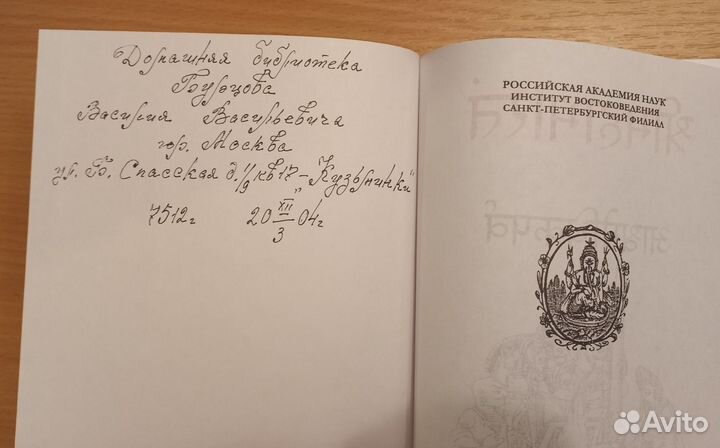 Домашняя библиотека
Бурцова
Василия Васильевича
гор. Москва
ул. Б. Спасская д. 1/9 кв 17 – „Кузьминки“
7512г 20 XII/3 04г
РОССИЙСКАЯ АКАДЕМИЯ НАУК
ИНСТИТУТ ВОСТОКОВЕДЕНИЯ
САНКТ-ПЕТЕРБУРГСКИЙ ФИЛИАЛ
Avito